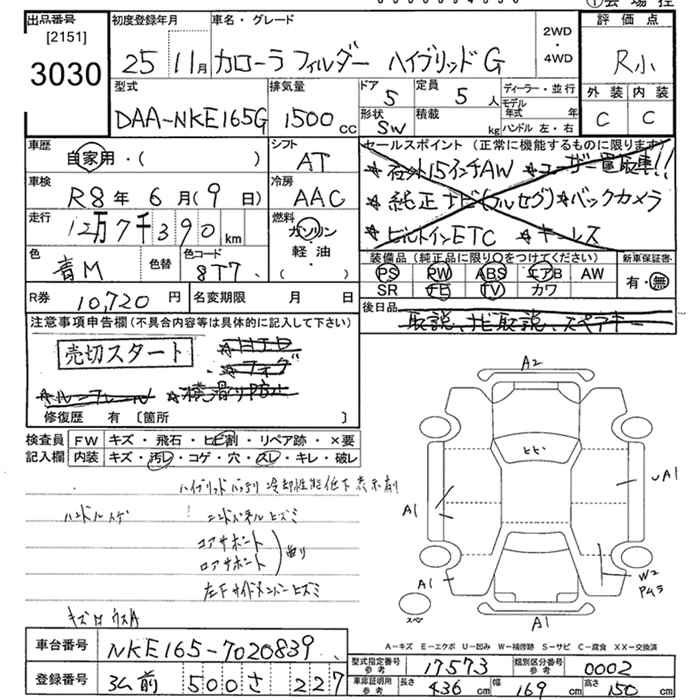 出品番号
[2151]
3030
初度登録年月
25 11月
車名・グレード
カローラフィルダー ハイブリッドG
2WD
・
4WD
評価点
R小
外装 内装
C C
型式
DAA-NKE165G
排気量
1500 cc
ドア
5
定員
5 人
形状
SW
積載
kg
ディーラー・並行
モデル年式 年
ハンドル 左・右
車歴
自家用・( )
シフト
AT
車検
R8年 6月(9日)
冷房
AAC
走行
12万7千390 km
燃料
ガソリン
軽油
・( )
色
青M
色替
色コード
8T7
R券
10,720円
名変期限 月 日
セールスポイント(正常に機能するものに限ります)
★社外15インチAW ★ユーザー買取車!!
★純正ナビ(フルセグ)★バックカメラ
★ビルトインETC ★キーレス
装備品(純正品に限り○をつけてください)
PS PW ABS エアB AW
SR ナビ TV カワ
新車保証書
有・無
後日品
取説、ナビ取説、スペアキー
注意事項申告欄(不具合内容等は具体的に記入して下さい)
売切スタート
★HID
★フォグ
★ルーフレール ★横滑り防止
修復歴 有 [箇所 ]
検査員記入欄
FW キズ・飛石・ヒビ割・リペア跡・×要
内装 キズ・汚レ・コゲ・穴・スレ・キレ・破レ
ハイブリッドバッテリ 冷却性能低下表示有
ハンドルスレ
エンドパネルヒズミ
コアサポート
ロアサポート
曲り
左Fサイドメンバーヒズミ
A2
ヒビ
A1
A1
A1
W2
A1
スペア
A-キズ E-エクボ U-凹み W-補修跡 S-サビ C-腐食 XX-交換済
車台番号
NKE165-7020839
登録番号
500 さ 227
型式指定番号 参考
17573
類別区分番号 参考
0002
車庫証明用 参考
長さ 436 cm 幅 169 cm 高さ 150 cm